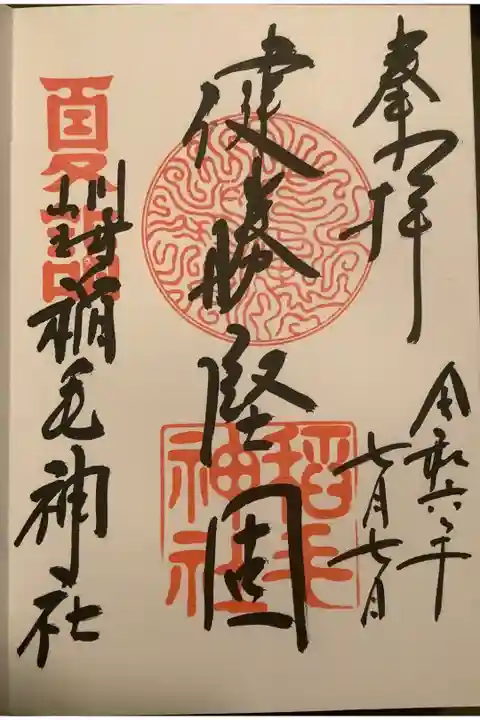 奉拝
令和六年
七月七日
健勝堅固
稲毛
神社
川崎稲毛神社
夏詣